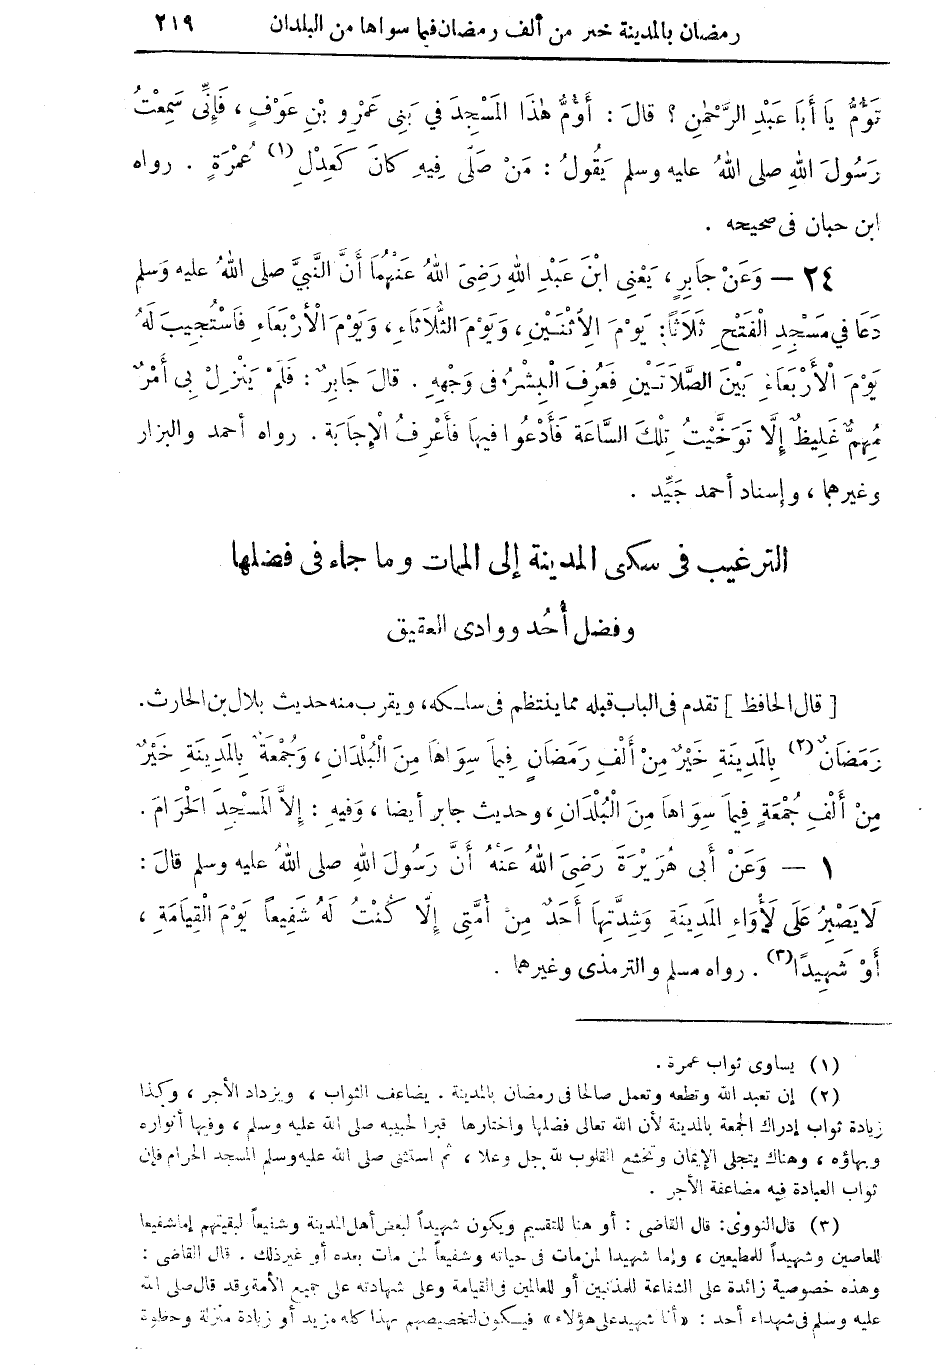 رمضان بالمدينة خير من ألف رمضان فيما سواها من البلدان ٢١٩
تَؤُمُّ يَا أَبَا عَبْدِ الرَّحْمٰنِ ؟ قالَ : أَؤُمُّ هٰذَا المَسْجِدَ فِي بَنِي عَمْرِو بْنِ عَوْفٍ ، فَإِنِّى سَمِعْتُ
رَسُولَ اللهِ صلى اللهُ عليه وسلم يَقُولُ : مَنْ صَلَّى فِيهِ كانَ كَعِدْلِ (١) عُمْرَةٍ . رواه
ابن حبان فى صحيحه .
٢٤ – وَعَنْ جَابِرٍ ، يَعْنِى ابْنَ عَبْدِ اللهِ رَضِىَ اللهُ عَنْهُمَا أَنَّ النَّبِيَّ صلى اللهُ عليه وَسلم
دَعَا في مَسْجِدِ الْفَتْحِ ثَلاَثًا: يَوْمَ الاِثْنَيْنِ ، وَيَوْمَ الثُّلاَثَاءِ ، وَيَوْمَ الْأَرْبَعَاءِ فَاسْتُجِيبَ لَهُ
يَوْمَ الْأَرْبَعَاءِ بَيْنَ الصَّلاَتَيْنِ فَعُرِفَ الْبِشْرُ فى وَجْهِهِ . قالَ جَابِرٌ : فَلَمْ يَنْزِلْ بِى أَمْرٌ
مُهِمٌّ غَلِيظٌ إِلَّا تَوَخَّيْتُ تِلْكَ السَّاعَةَ فَأَدْعُوا فيها فَأَعْرِفُ الْإِجَابَةَ . رواه أحمد والبزار
وغيرهما ، وإسناد أحمد جَيِّد .
الترغيب فى سكنى المدينة إلى الممات وما جاء فى فضلها
وفضل أُحُد ووادى العقيق
[ قال الحافظ ] تقدم فى الباب قبله مما ينتظم فى سلكه ، ويقرب منه حديث بلال بن الحارث .
رَمَضَانٌ (٢) بِالمَدِينَةِ خَيْرٌ مِنْ أَلْفِ رَمَضَانٍ فِيمَا سَوِاهَا مِنَ الْبُلْدَانِ ، وَجُمْعَةٌ بِالمَدِينَةِ خَيْرٌ
مِنْ أَلْفِ جُمْعَةٍ فِيمَا سِوَاهَا مِنَ الْبُلْدَانِ ، وحديث جابر أيضا ، وَفيهِ : إِلاَّ المَسْجِدَ الحَرَامَ .
١ – وَعَنْ أَبى هُرَيْرَةَ رَضِىَ اللهُ عَنْهُ أَنَّ رَسُولَ اللهِ صلى اللهُ عليه وسلم قالَ :
لَا يَصْبِرُ عَلَى لَأْوَاءِ المَدِينَةِ وَشِدَّتِهَا أَحَدٌ مِنْ أُمَّتِى إِلَّا كُنْتُ لَهُ شَفِيعاً يَوْمَ الْقِيَامَةِ ،
أَوْ شَهِيدًا (٣) . رواه مسلم والترمذى وغيرهما .
(١) يساوى ثواب عمرة .
(٢) إن تعبد الله وتطعه وتعمل صالحا فى رمضان بالمدينة . يضاعف الثواب ، ويزداد الأجر ، وكذا
زيادة ثواب إدراك الجمعة بالمدينة لأن الله تعالى فضلها واختارها قبرا لحبيبه صلى الله عليه وسلم ، وفيها أنواره
وبهاؤه ، وهناك يتجلى الإيمان وتخشع القلوب لله جل وعلا ، ثم استثنى صلى الله عليه وسلم المسجد الحرام فإن
ثواب العبادة فيه مضاعفة الأجر .
(٣) قال النووى: قال القاضى : أو هنا للتقسيم ويكون شهيداً لبعض أهل المدينة وشفيعاً لبقيتهم إما شفيعا
للعاصين وشهيداً للمطيعين ، وإما شهيدا لمن مات فى حياته وشفيعاً لمن مات بعده أو غير ذلك . قال القاضى :
وهذه خصوصية زائدة على الشفاعة للمذنبين أو للعالمين فى القيامة وعلى شهادته على جميع الأمة وقد قال صلى الله
عليه وسلم فى شهداء أحد : «أنا شهيد على هؤلاء» فيكون لتخصيصهم بهذا كله مزيد أو زيادة منزلة وحظوة